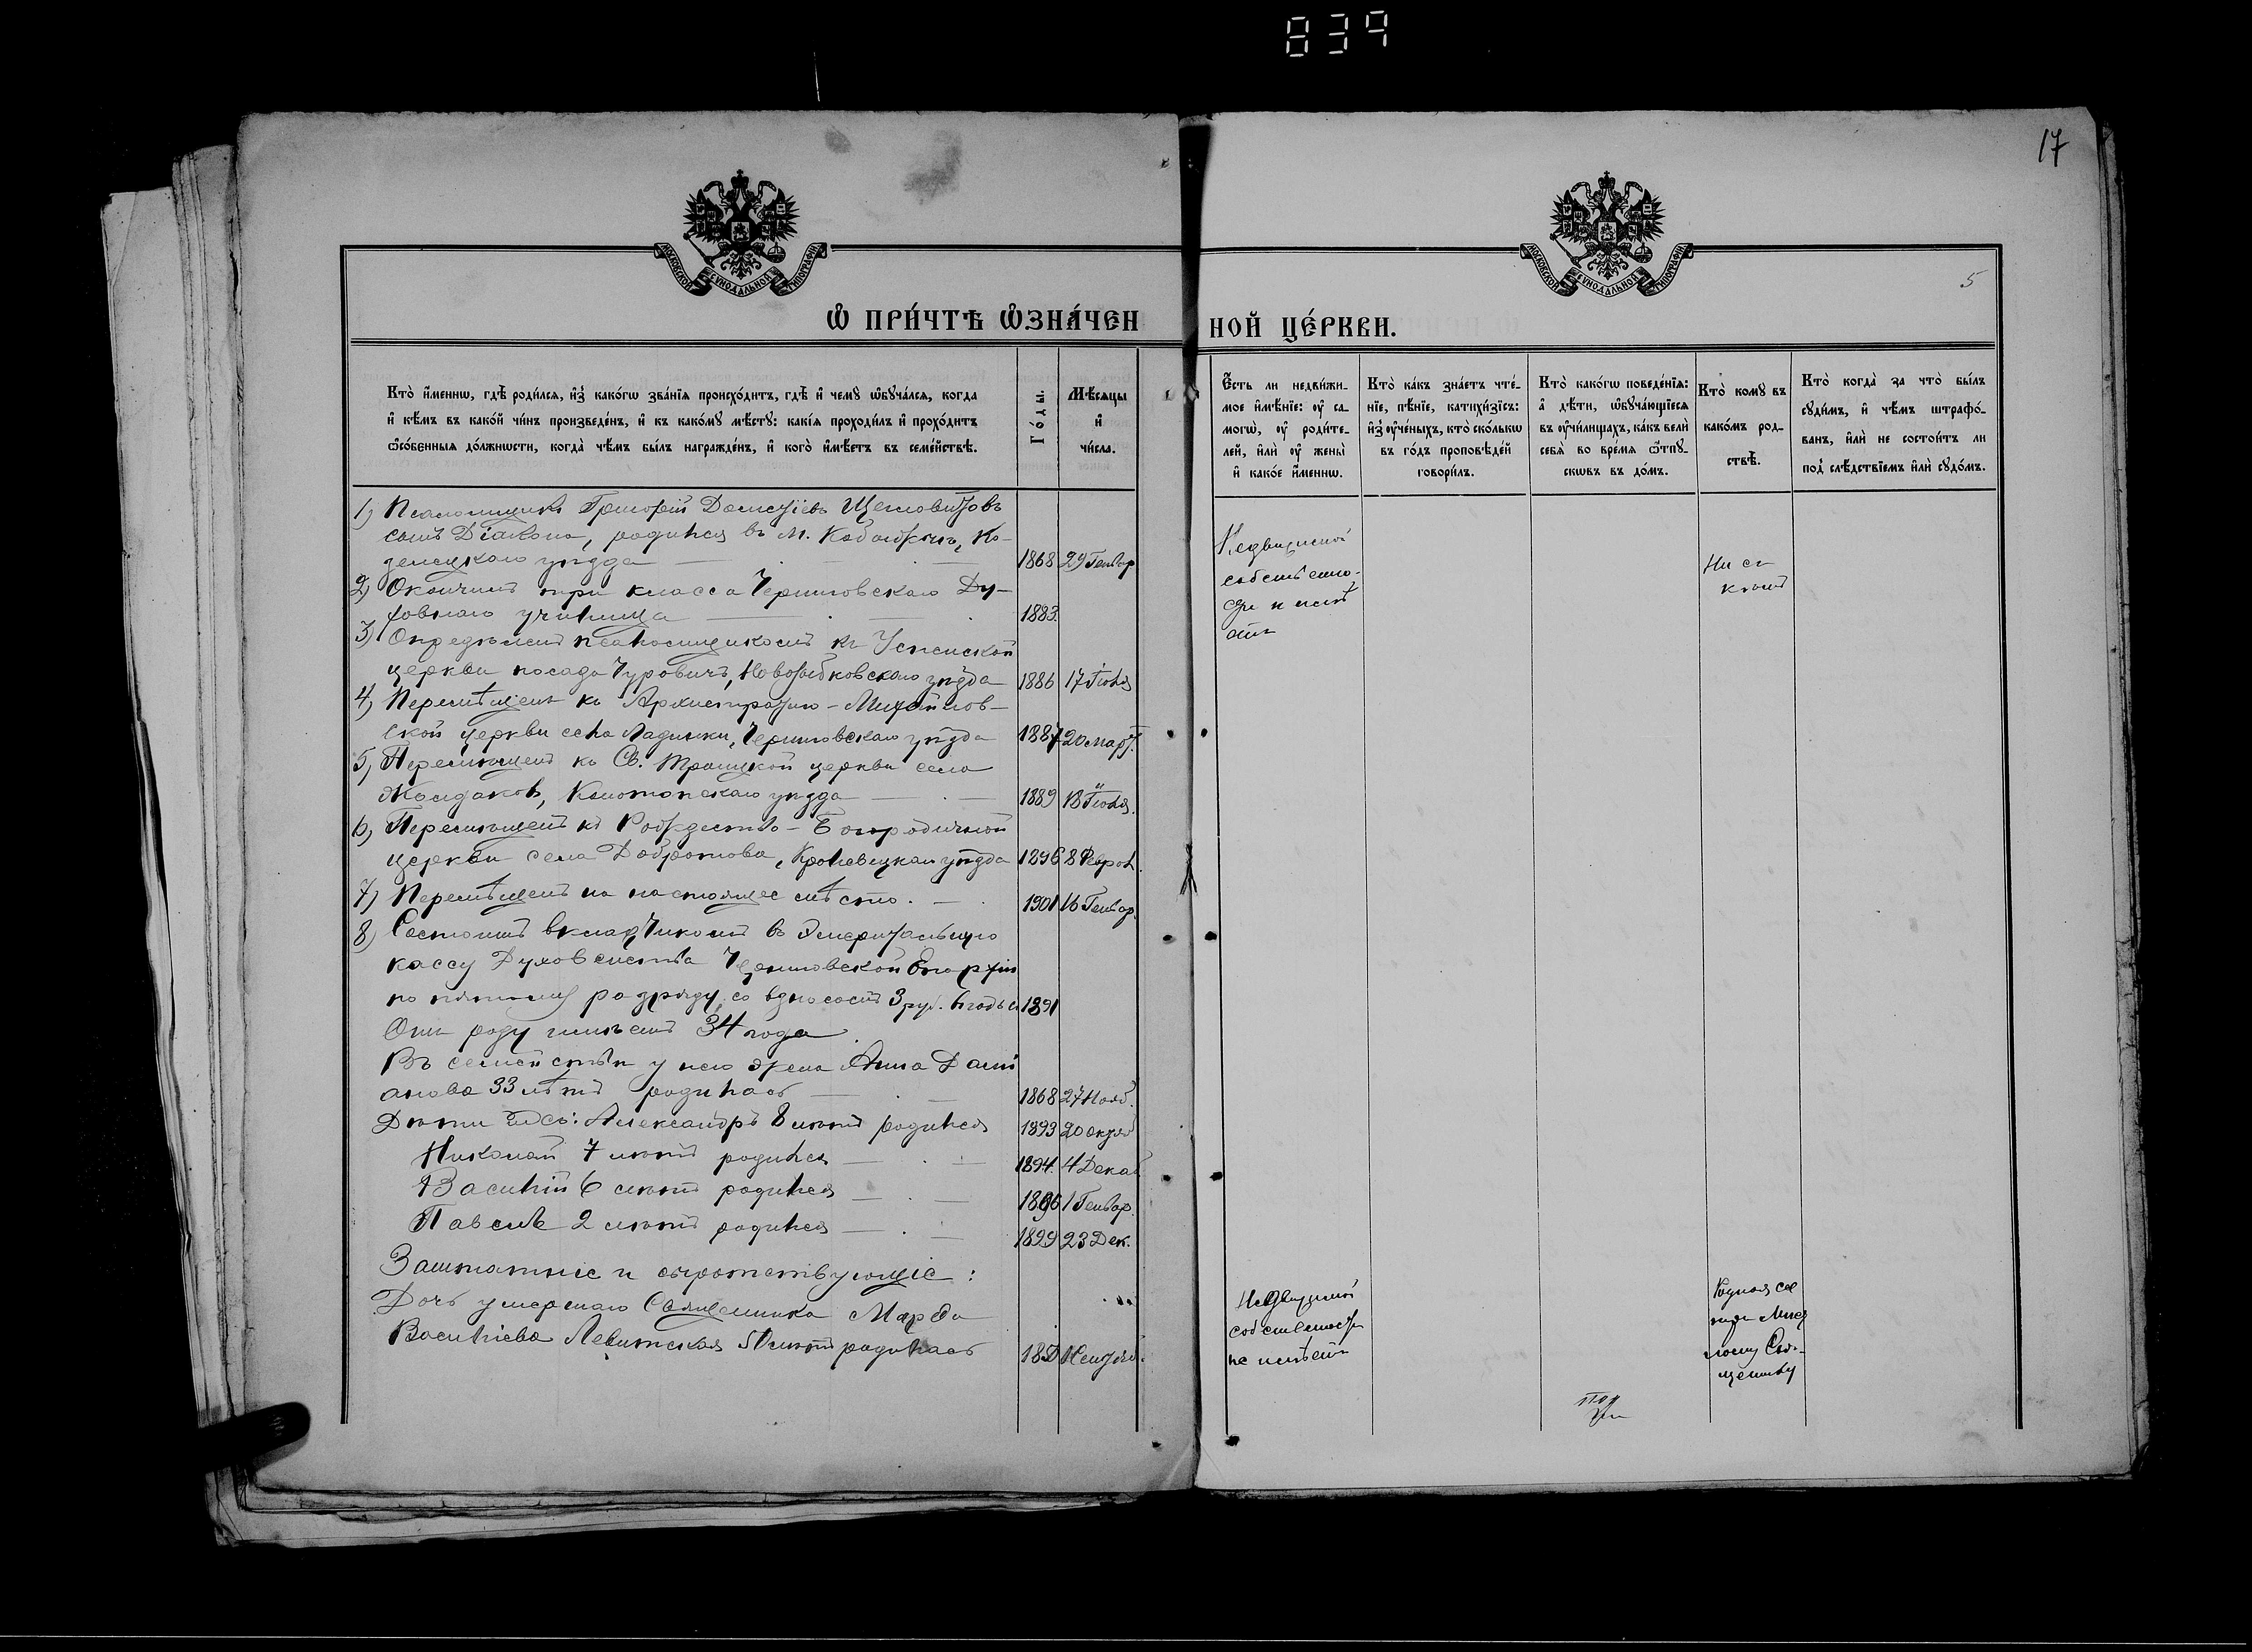 834
17
5
МОСКОВСКОЙ СѴНОДАЛЬНОЙ ТИПОГРАФІИ
МОСКОВСКОЙ СѴНОДАЛЬНОЙ ТИПОГРАФІИ
Ѽ ПРИ́ЧТѢ Ѡ҆ЗНА́ЧЕН
НОЙ ЦЕ́РКВИ.
Кто̀ и҆́менно, гдѣ̀ роди́лся, и҆з̾ како́гѡ зва́нїѧ происхо́дитъ, гдѣ̀ и҆ чемꙋ̀ ѡ҆бꙋча́лся, когда̀
и҆ кѣ́мъ въ како́й чи́нъ произведе́нъ, и҆ къ како́мꙋ мѣ́стꙋ: какі́ѧ проходи́лъ и҆ прохо́дитъ
ѻ҆со́бєнныѧ до́лжнѡсти, когда̀ чѣ́мъ бы́лъ награжде́нъ, и҆ кого̀ и҆мѣ́етъ въ семе́йствѣ.
Го́ды.
Мѣ́сяцы
и҆
чи́сла.
Є҆́сть ли недви́жи-
мое и҆мѣ́нїе: оу҆ са-
могѡ̀, оу҆ роди́те-
лей, и҆лѝ оу҆ жены̀
и҆ како́е и҆́менно.
Кто̀ ка́къ зна́етъ чте́-
нїе, пѣ́нїе, катихи́зїсъ:
и҆з̾ оу҆че́ныхъ, кто̀ ско́лькѡ
въ го́дъ проповѣ́дей
говори́лъ.
Кто̀ како́гѡ поведе́нїѧ:
а҆ дѣ́ти, ѡ҆бꙋча́ющїеся
въ оу҆чи́лищахъ, ка́къ велѝ
себѧ̀ во вре́мѧ ѿпꙋ-
скѡвъ въ до́мъ.
Кто̀ комꙋ̀ въ
како́мъ род-
ствѣ̀.
Кто̀ когда̀ за что̀ бы́лъ
сꙋди́мъ, и҆ чѣ́мъ штрафо́-
ванъ, и҆лѝ не состои́тъ ли
под̾ слѣ́дствїемъ и҆лѝ сꙋдо́мъ.
1) Псаломщикъ Григорій Щегловитовъ
сынъ Діакона, родился въ м. Ко-
зелецкаго уѣзда 1868 29 Генвар
2) Окончилъ три класса Черниговскаго Ду-
ховнаго училища 1883.
3) Опредѣленъ псаломщикомъ къ Успенской
церкви посада Чуровичъ, Новозыбковскаго уѣзда 1886 17 Іюля
4) Перемѣщенъ къ Архистратиго-Михайлов-
ской церкви села Ладинки, Черниговскаго уѣзда 1887 20 март.
5) Перемѣщенъ къ Св. Троицкой церкви села
Жолдаковъ, Конотопскаго уѣзда 1889 13 Іюля
6) Перемѣщенъ къ Рождество-Богородичной
церкви села Добротова, Кролевецкаго уѣзда 1896 8 Феврал.
7) Перемѣщенъ на настоящее мѣсто. 1901 16 Генвар.
8) Состоитъ вкладчикомъ въ Эмеритальную
кассу Духовенства Черниговской Епархіи
по пятому разряду, со взносомъ 3 руб. въ годъ съ 1891
Отъ роду имѣетъ 34 года.
Въ семействѣ у него жена Анна Даміа
анова 33 лѣтъ родилась 1868 27 Нояб.
Дѣти ихъ: Александръ 8 лѣтъ родился 1893 20 октяб
Николай 7 лѣтъ родился 1894. 4 Декаб
Василій 6 лѣтъ родился 1896 1 Генвар.
Павелъ 2 лѣтъ родился 1899 23 Дек.
Заштатные и сиротствующіе:
Дочь умершаго Священника Марѳа
Васильева Левитская лѣтъ родилась
Недвижимой
собственно-
сти не имѣ
етъ
Ни съ
кѣмъ
Недвижимой
собственности
не имѣетъ
Родная се
стра
Свя-
щеннику